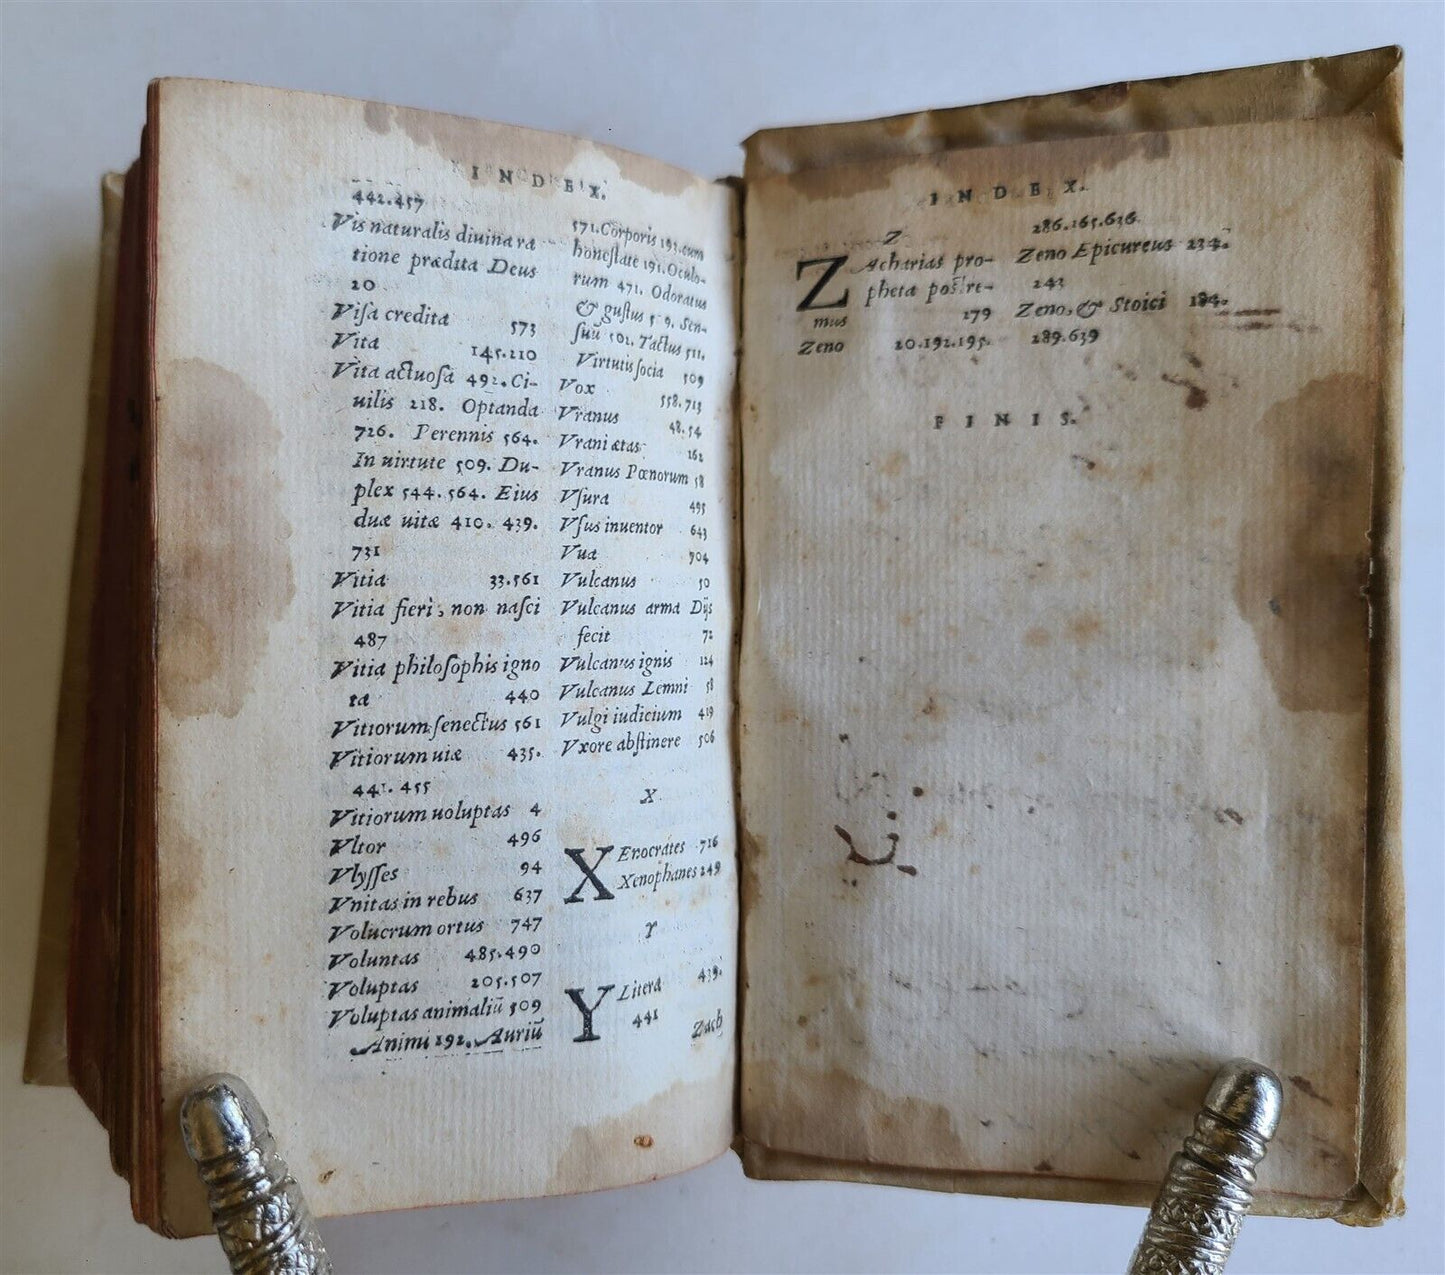 INDEX.
442.457
Vis naturalis diuina ra
tione prædita Deus
20
Visa credita 573
Vita 145.210
Vita actuosa 492. Ci-
uilis 218. Optanda
726. Perennis 564.
In uirtute 509. Du-
plex 544.564. Eius
duæ uitæ 410. 439.
731
Vitia 33.561
Vitia fieri, non nasci
487
Vitia philosophis igno
ta 440
Vitiorum senectus 561
Vitiorum uiæ 435.
441.455
Vitiorum uoluptas 4
Vltor 496
Vlysses 94
Vnitas in rebus 637
Volucrum ortus 747
Voluntas 485.490
Voluptas 205.507
Voluptas animaliũ 509
Animi 192. Auriũ
571. Corporis 193. cum
honestate 191. Oculo-
rum 471. Odoratus
& gustus 5 9. Sen-
suũ 502. Tactus 511.
Virtutis socia 509
Vox 558.713
Vranus 48.54
Vrani ætas 162
Vranus Pœnorum 58
Vsura 495
Vsus inuentor 643
Vua 904
Vulcanus 50
Vulcanus arma Dijs
fecit 72
Vulcanus ignis 124
Vulcanus Lemni 58
Vulgi iudicium 419
Vxore abstinere 506
X
XEnocrates 716
Xenophanes 249
Y
Y Litera 439.
441
Zach
INDEX.
Z
ZAcharias pro-
pheta postre-
mus 179
Zeno 20.192.195.
286.165.636
Zeno Epicureus 234.
243
Zeno, & Stoici 184.
289.639
FINIS.